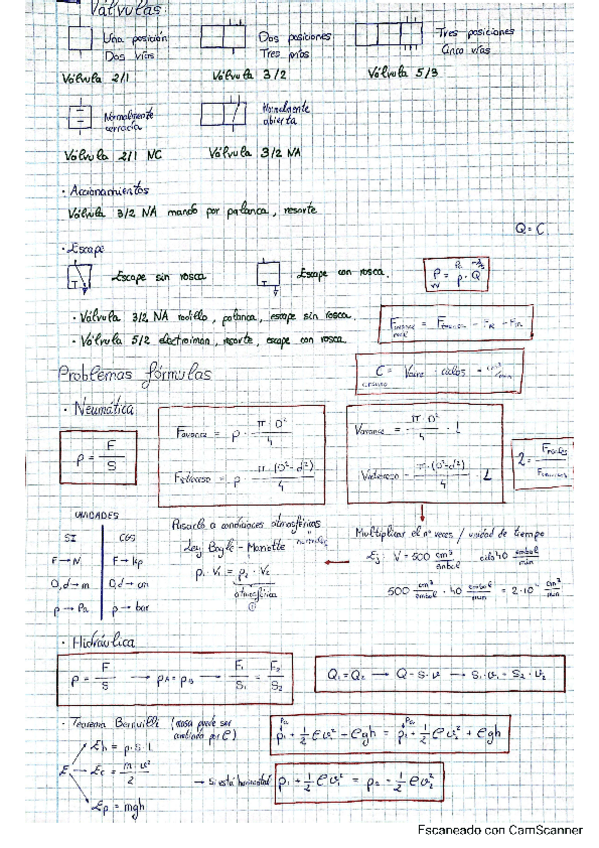 Válvulas
Una posición
Dos vías
Dos posiciones
Tres vías
Tres posiciones
Cinco vías
Válvula 2/1
Válvula 3/2
Válvula 5/3
Normalmente
cerrada
Normalmente
abierta
Válvula 2/1 NC
Válvula 3/2 NA
· Accionamientos
Válvula 3/2 NA mando por palanca, resorte
Q = C
· Escape
Escape sin rosca
Escape con rosca.
P = p · Q
· Válvula 3/2 NA rodillo, palanca, escape sin rosca.
· Válvula 5/2 electroiman, resorte, escape con rosca
C = ciclos
Problemas fórmulas
· Neumática
p = F / S
Favance = p · π·D² / 4
Fretroceso = p · π·(D²-d²) / 4
Vavance = π·D² / 4 · L
Vretroceso = π·(D²-d²) / 4 · L
UNIDADES
SI CGS
F → N F → kp
D,d → m D,d → cm
p → Pa p → bar
Pasarlo a condiciones atmosféricas
normales
Ley Boyle - Mariotte
p₁·V₁ = p₂·V₂
atmosférica
Multiplicar el nº veces / unidad de tiempo
Ej: V = 500 cm³/émbol ciclo 40 embol/min
500 cm³/embol · 40 embol/min = 2·10⁴ cm³/min
· Hidráulica
p = F/S → pA = pB → F₁/S₁ = F₂/S₂
Q₁ = Q₂ → Q = S·v → S₁·v₁ = S₂·v₂
· Teorema Bernuilli (masa puede ser
cambiada por ρ)
E
Eh = p·S·l
Ec = m·v² / 2
Ep = mgh
→ Si está horizontal p₁ + 1/2 ρv₁² = p₂ + 1/2 ρv₂²
Escaneado con CamScanner